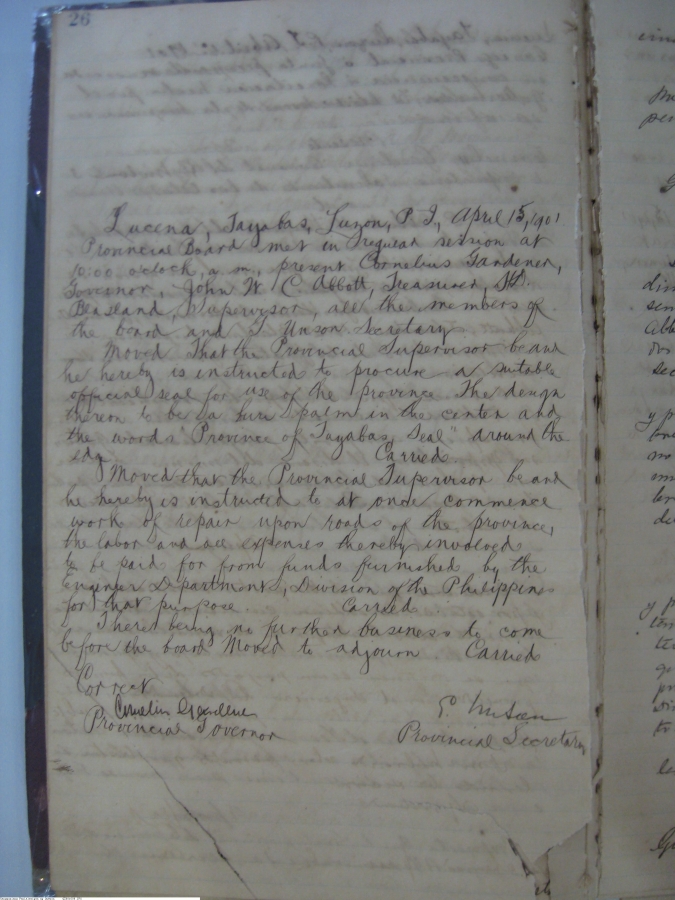 26
Lucena, Tayabas, Luzon, P. I., April 15, 1901
Provincial Board met in regular session at
10:00 o'clock, a.m., present Cornelius Gardener,
Governor, John W. C. Abbott, Treasurer,
Beasland, Supervisor, all the members of
the board and G Unson Secretary.
Moved That the Provincial Supervisor be and
he hereby is instructed to procure a suitable
official seal for use of the province The design
thereon to be a palm in the center and
the words "Province of Tayabas, Seal" around the
edge Carried.
Moved that the Provincial Supervisor be and
he hereby is instructed to at once commence
work of repair upon roads of the province,
the labor and all expenses thereby involved
to be paid for from funds furnished by the
Engineer Department, Division of the Philippines
for that purpose. Carried.
There being no further business to come
before the board Moved to adjourn. Carried
Correct
Cornelius Gardener
Provincial Governor
G. Unson
Provincial Secretary